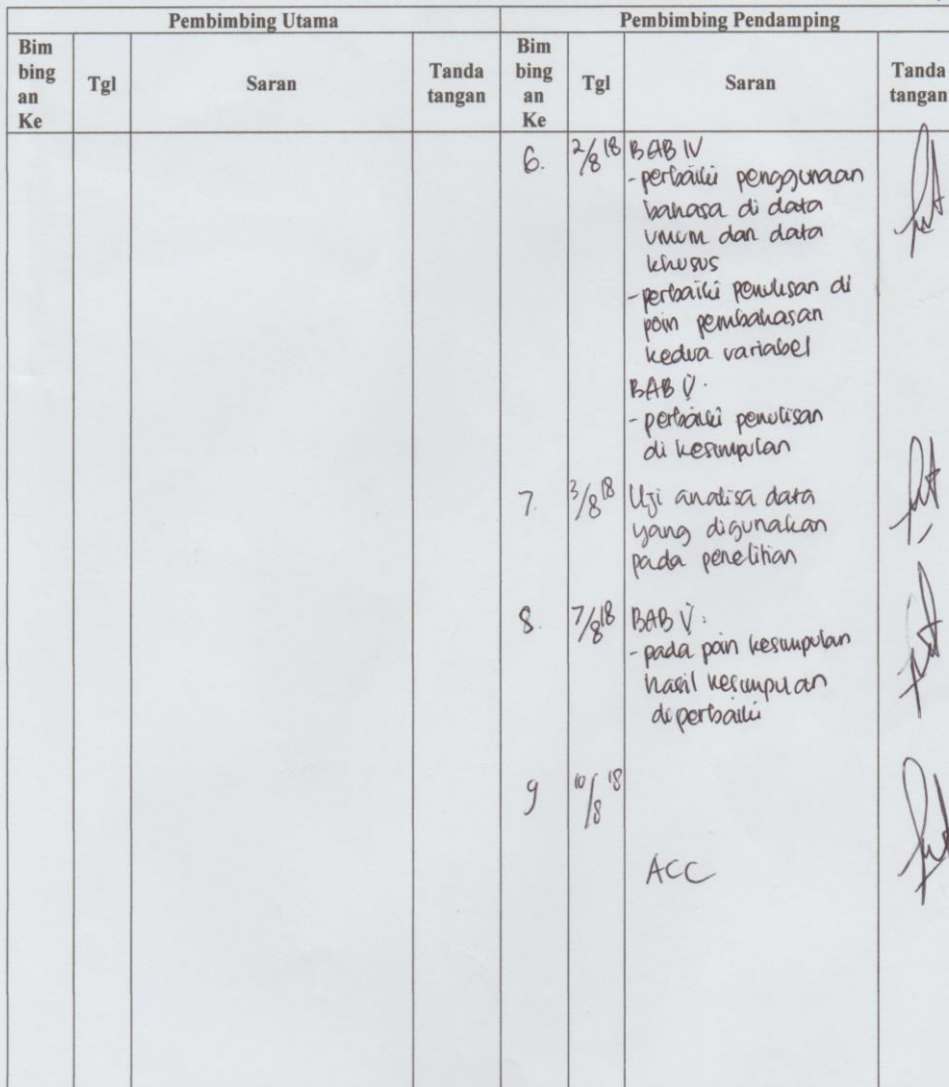 Pembimbing Utama
Pembimbing Pendamping
Bim
bing
an
Ke
Tgl
Saran
Tanda
tangan
Bim
bing
an
Ke
Tgl
Saran
Tanda
tangan
6. 2/8 18 BAB IV
- perbaiki penggunaan
bahasa di data
umum dan data
khusus
- perbaiki penulisan di
poin pembahasan
kedua variabel
BAB V.
- perbaiki penulisan
di kesimpulan
7. 3/8 18 Uji analisa data
yang digunakan
pada penelitian
8. 7/8 18 BAB V:
- pada poin kesimpulan
hasil kesimpulan
diperbaiki
9 10/8 18
ACC